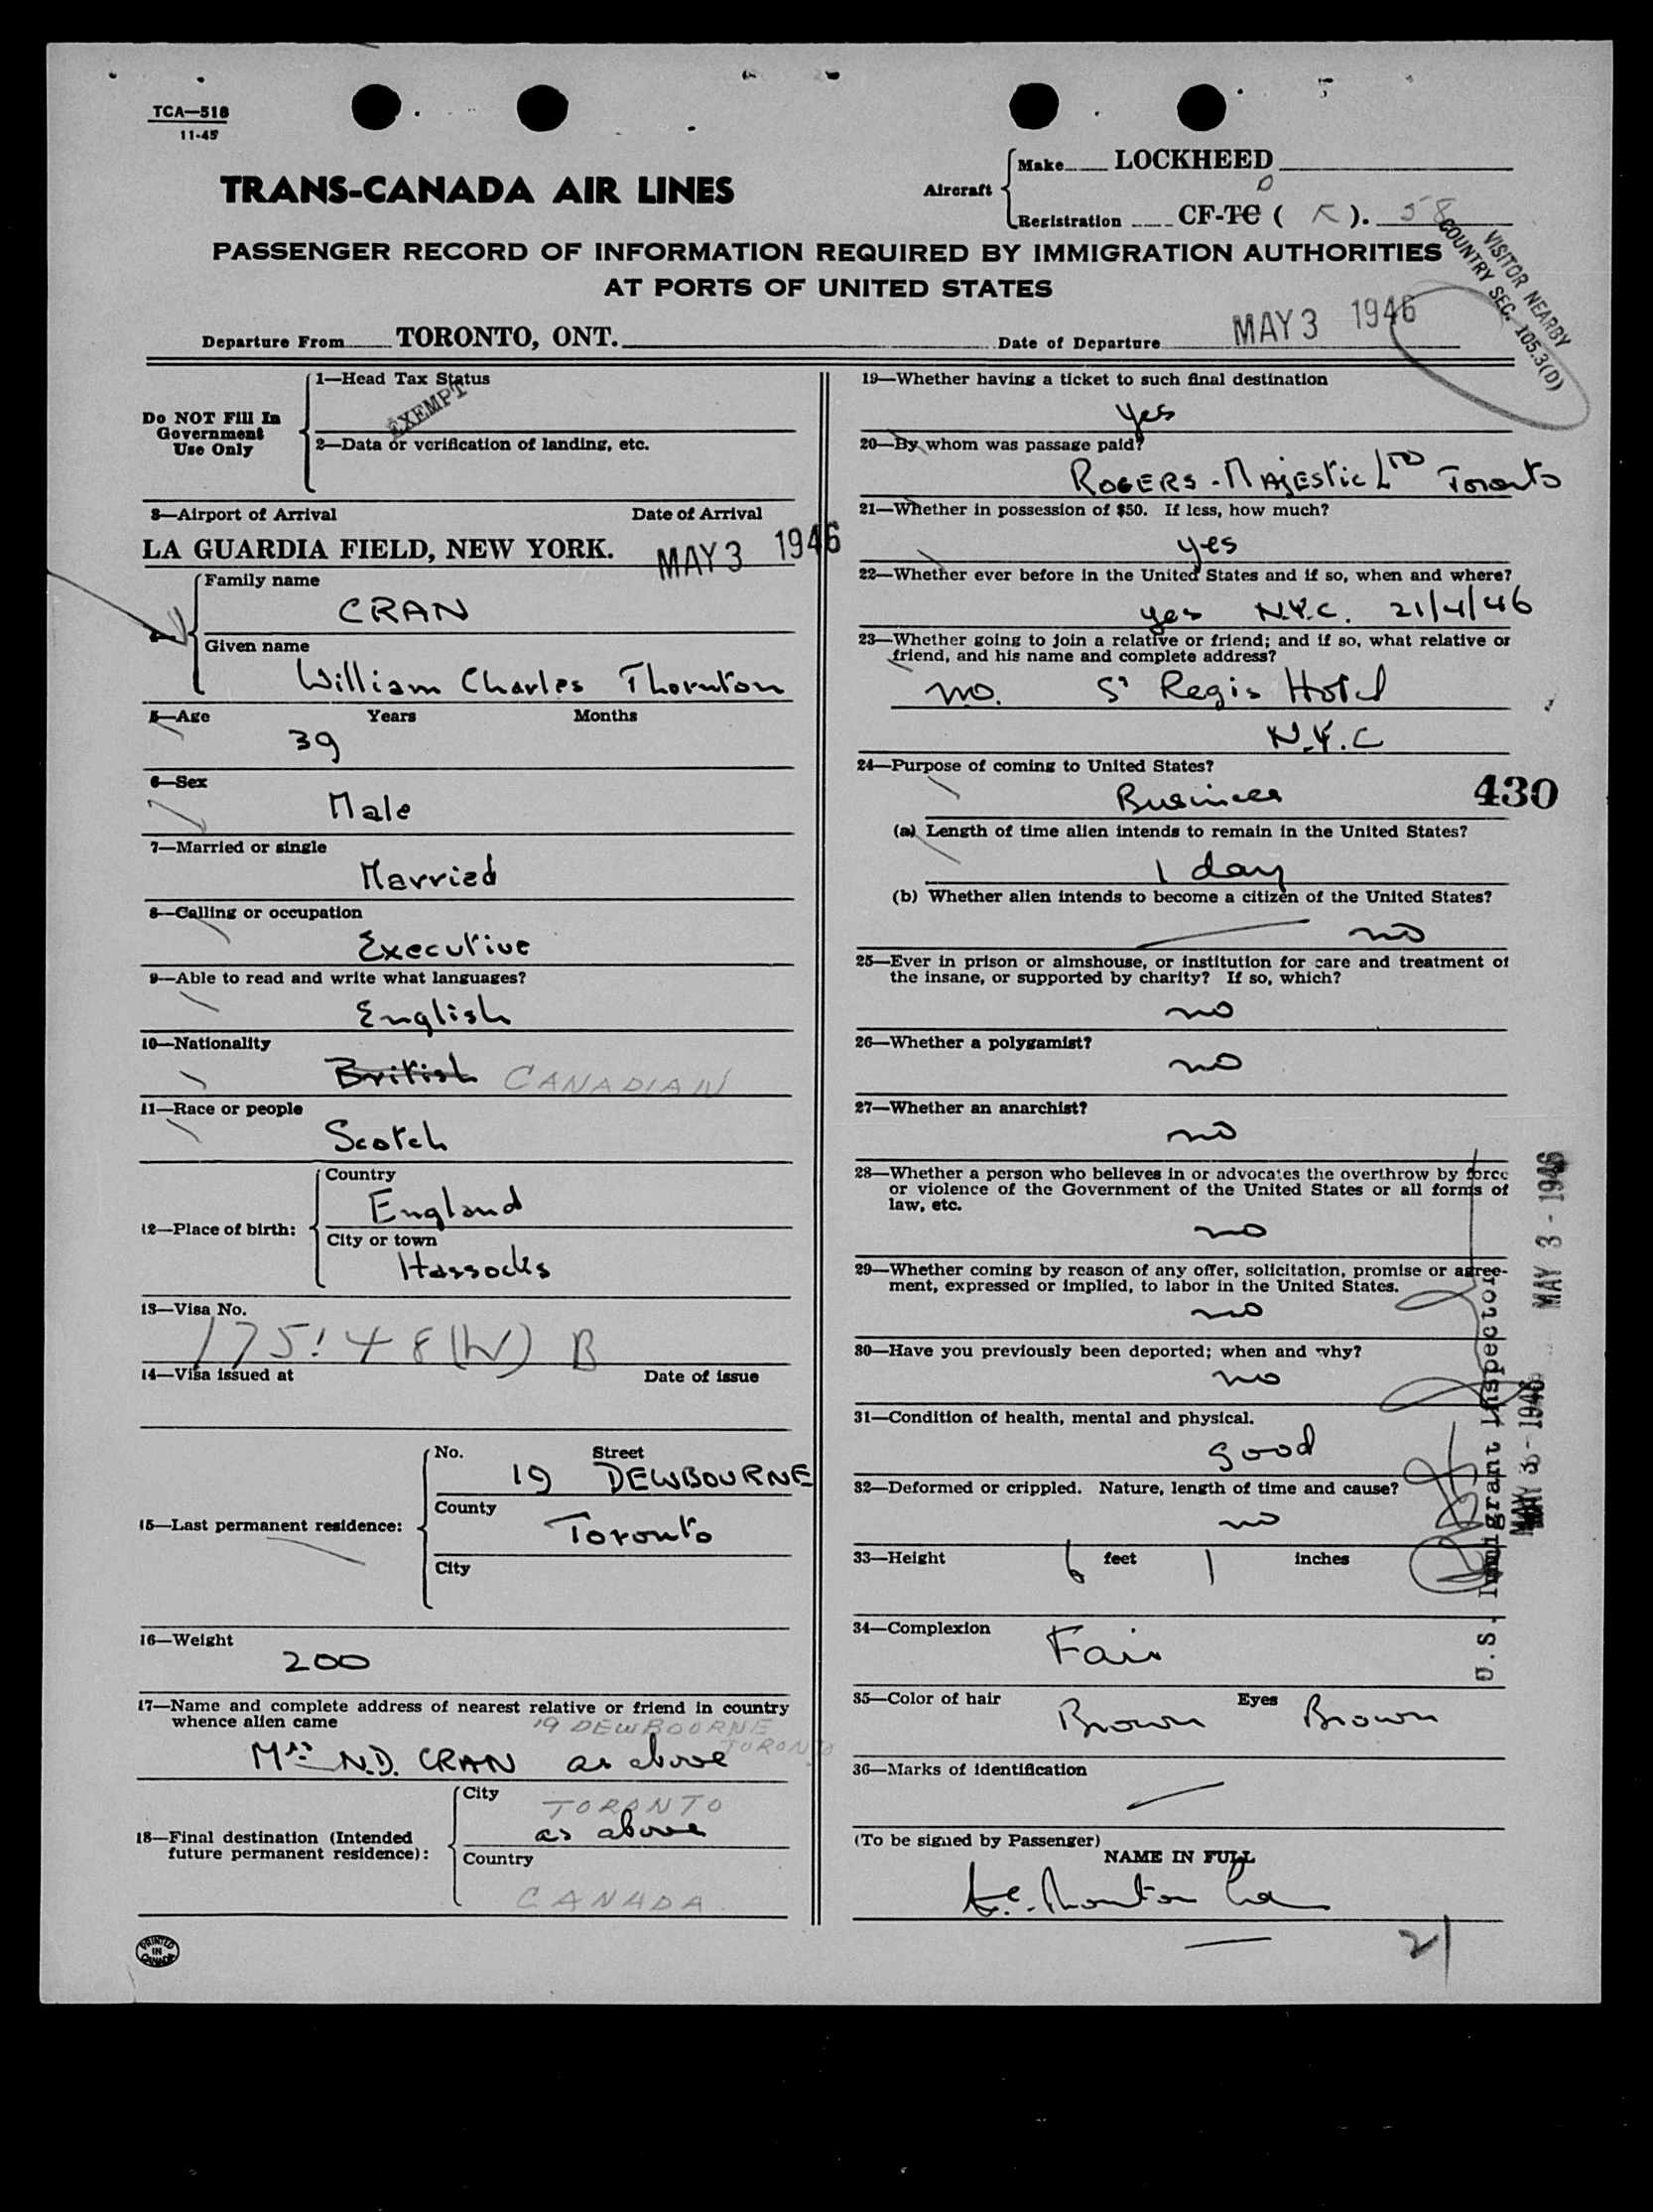 TCA—518
11-45
TRANS-CANADA AIR LINES
Aircraft
Make LOCKHEED
Registration CF-TC ( K ). 58
PASSENGER RECORD OF INFORMATION REQUIRED BY IMMIGRATION AUTHORITIES
AT PORTS OF UNITED STATES
VISITOR NEARBY
COUNTRY SEC. 105.3(D)
Departure From TORONTO, ONT.
Date of Departure MAY 3 1946
Do NOT Fill In
Government
Use Only
1—Head Tax Status
EXEMPT
2—Data or verification of landing, etc.
3—Airport of Arrival Date of Arrival
LA GUARDIA FIELD, NEW YORK. MAY 3 1946
Family name
CRAN
Given name
William Charles Thornton
5—Age Years Months
39
6—Sex
Male
7—Married or single
Married
8—Calling or occupation
Executive
9—Able to read and write what languages?
English
10—Nationality
British CANADIAN
11—Race or people
Scotch
12—Place of birth:
Country
England
City or town
Hassocks
13—Visa No.
175.48(W) B
14—Visa issued at Date of issue
15—Last permanent residence:
No. Street
19 DEWBOURNE
County
Toronto
City
16—Weight
200
17—Name and complete address of nearest relative or friend in country
whence alien came
19 DEWBOURNE
TORONTO
Mrs N.D. CRAN as above
18—Final destination (Intended
future permanent residence):
City
TORONTO
as above
Country
CANADA
PRINTED
IN
CANADA
19—Whether having a ticket to such final destination
yes
20—By whom was passage paid?
ROGERS-MAJESTIC LTD Toronto
21—Whether in possession of $50. If less, how much?
yes
22—Whether ever before in the United States and if so, when and where?
yes N.Y.C. 21/4/46
23—Whether going to join a relative or friend; and if so, what relative or
friend, and his name and complete address?
no. St Regis Hotel
N.Y.C
24—Purpose of coming to United States?
Business
430
(a) Length of time alien intends to remain in the United States?
1 day
(b) Whether alien intends to become a citizen of the United States?
no
25—Ever in prison or almshouse, or institution for care and treatment of
the insane, or supported by charity? If so, which?
no
26—Whether a polygamist?
no
27—Whether an anarchist?
no
28—Whether a person who believes in or advocates the overthrow by force
or violence of the Government of the United States or all forms of
law, etc.
no
29—Whether coming by reason of any offer, solicitation, promise or agree-
ment, expressed or implied, to labor in the United States.
no
30—Have you previously been deported; when and why?
no
31—Condition of health, mental and physical.
good
32—Deformed or crippled. Nature, length of time and cause?
no
33—Height 6 feet 1 inches
34—Complexion
Fair
35—Color of hair Brown Eyes Brown
36—Marks of identification
(To be signed by Passenger)
NAME IN FULL
21
U.S. Immigrant Inspector
MAY 3 - 1946
MAY 3 - 1946